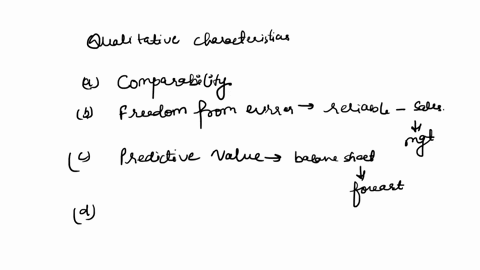 Qualitative characteristics
(a) Comparability.
(b) Freedom from error → reliable – Sales.
↓
mgt
(c) Predictive Value → balance sheet
↓
forecast
(d)